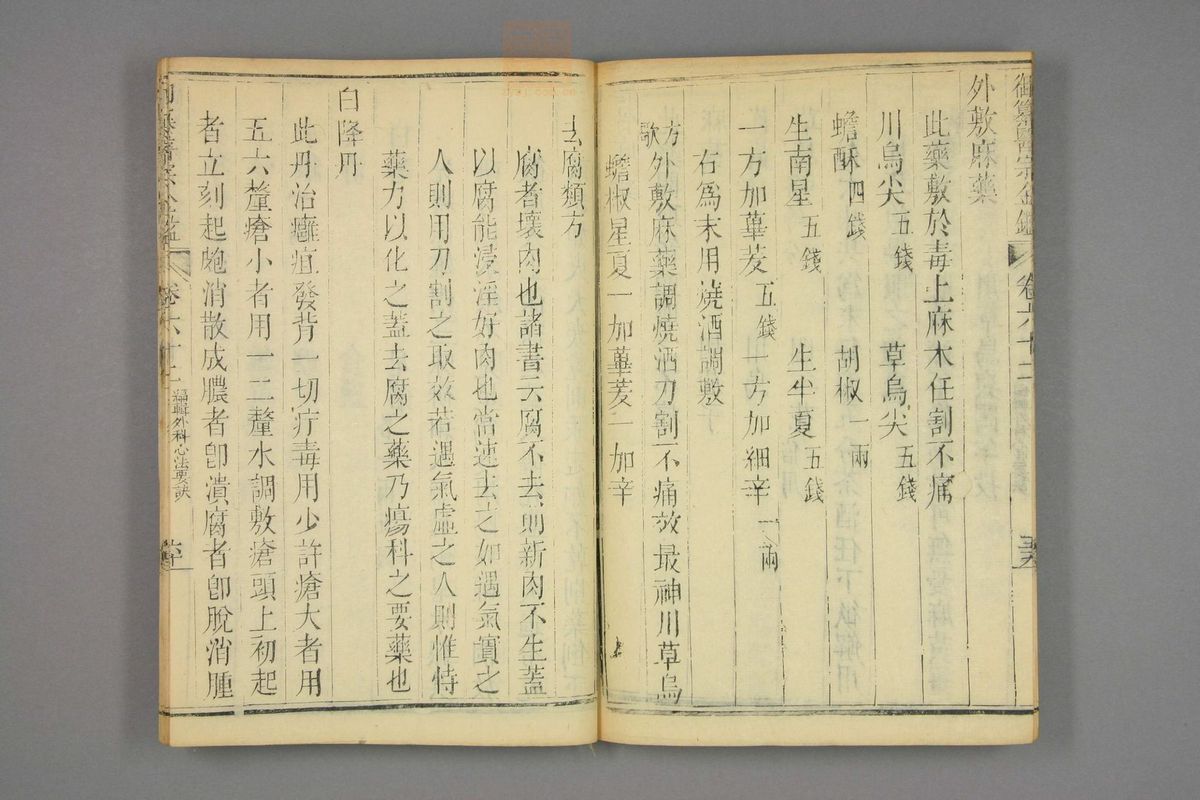 御纂醫宗金鑑 卷六十二
外敷麻藥
此藥敷於毒上麻木任割不痛
川烏尖五錢 草烏尖五錢
蟾酥四錢 胡椒一兩
生南星五錢 生半夏五錢
一方加蓽茇五錢一方加細辛一兩
右爲末用燒酒調敷
方歌 外敷麻藥調燒酒刀割不痛效最神川草烏
蟾椒星夏一加蓽茇一加辛
去腐類方
腐者壞肉也諸書云腐不去則新肉不生蓋
以腐能浸淫好肉也當速去之如遇氣實之
人則用刀割之取效若遇氣虛之人則惟恃
藥力以化之蓋去腐之藥乃瘍科之要藥也
白降丹
此丹治癰疽發背一切疔毒用少許瘡大者用
五六釐瘡小者用一二釐水調敷瘡頭上初起
者立刻起皰消散成膿者卽潰腐者卽脫消腫
醫宗金鑑 卷六十二 編輯外科心法要訣 六十